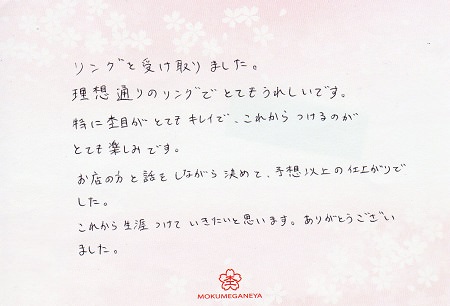 リングを受け取りました。
理想通りのリングでとてもうれしいです。
特に杢目がとてもキレイで、これからつけるのが
とても楽しみです。
お店の方と話をしながら決めて、予想以上の仕上がりで
した。
これから生涯つけていきたいと思います。ありがとうござい
ました。
MOKUMEGANEYA